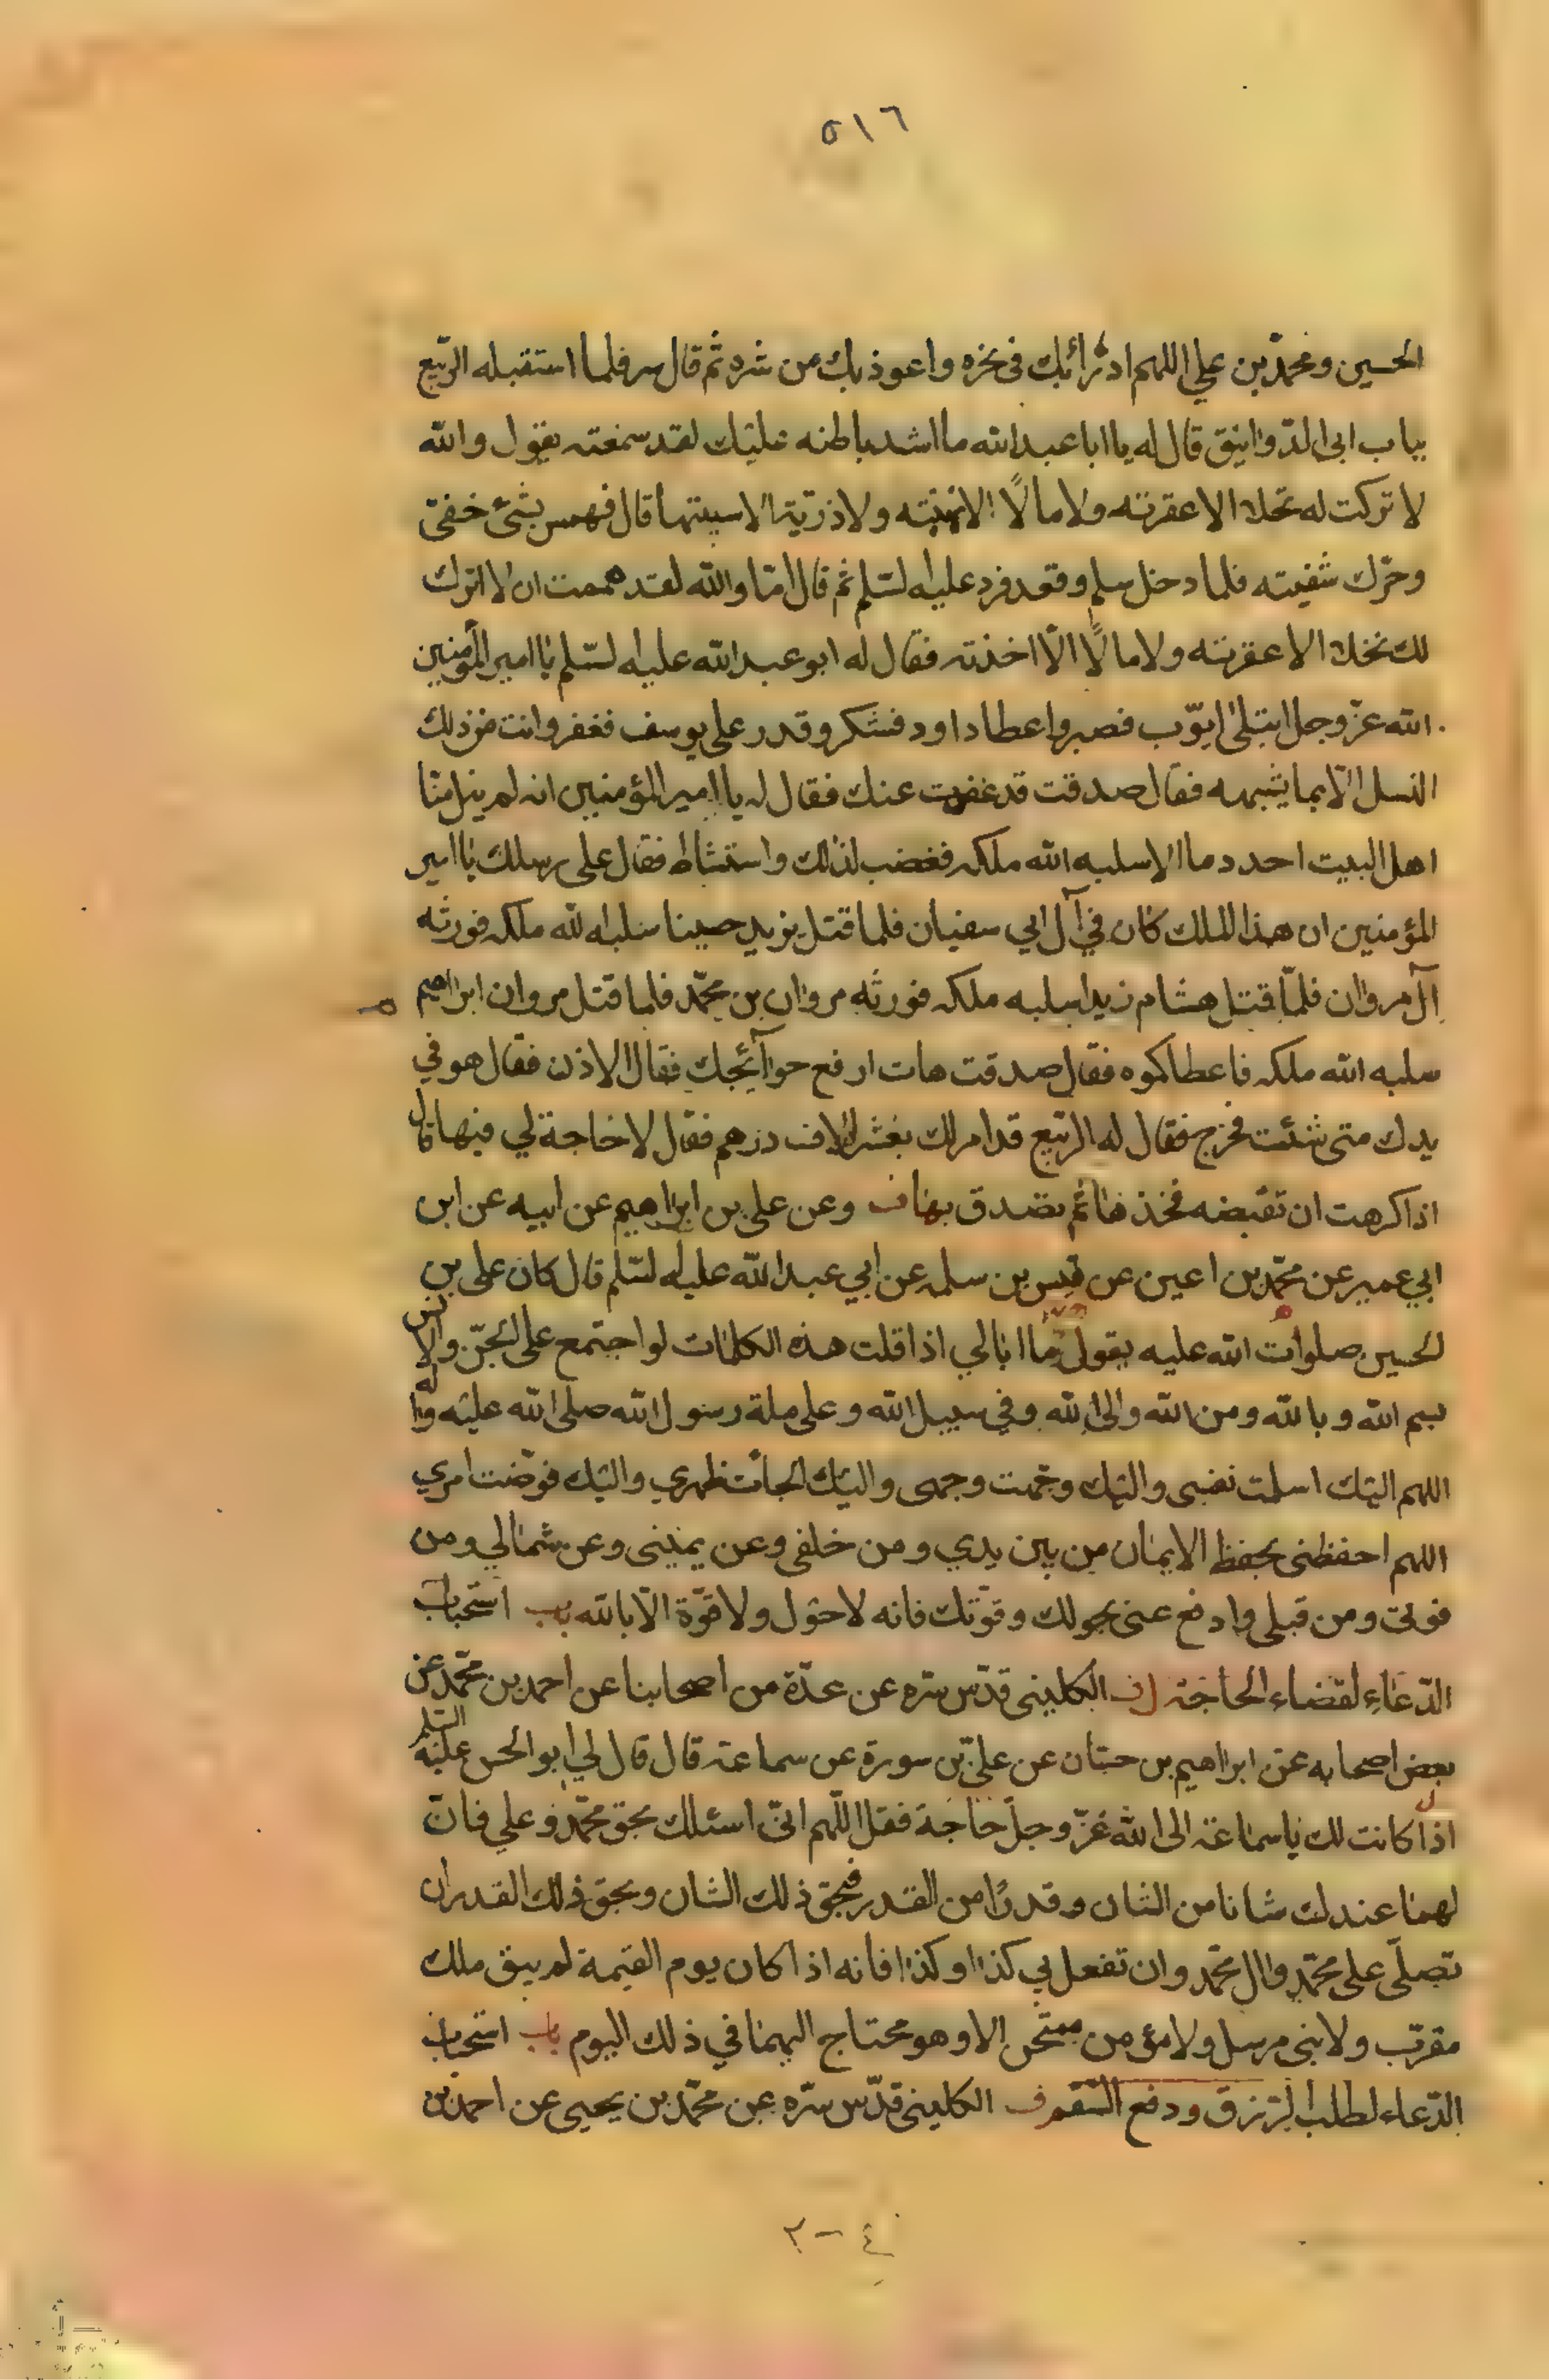 ٥١٦
الحسين ومحمّد بن علي اللهم ادرئ بك في نحره واعوذ بك من شره ثم قال سر فلما استقبله الرّبيع
بباب ابي الدّوانيق قال له يا ابا عبد الله ما اشد باطنه عليك لقد سمعته يقول والله
لا تركت له نخلا الا عقرته ولا مالًا الا نهبته ولا ذريّة الا سبيتها قال فهمس بشئ خفيّ
وحرّك شفيته فلما دخل سلم وقعد فرد عليه السّلم ثم قال امّا والله لقد هممت ان لا اترك
لك نخلا الا عقرته ولا مالًا الّا اخذته فقال له ابو عبد الله عليه السّلم يا امير المؤمنين
الله عزّ وجل ابتلى ايّوب فصبر واعطا داود فشكر وقدر على يوسف فغفر وانت من ذلك
النسل الّا بما يشبهه فقال صدقت قد عفوت عنك فقال له يا امير المؤمنين انه لم ينل منّا
اهل البيت احد دما الا سلبه الله ملكه فغضب لذلك واستشاط فقال على رسلك يا امير
المؤمنين ان هذا الملك كان في آل ابي سفيان فلما قتل يزيد حسينا سلبه الله ملكه فورثه
آل مروان فلمّا قتل هشام زيدا سلبه ملكه فورثه مروان بن محمّد فلما قتل مروان ابراهيم
سلبه الله ملكه فاعطاكموه فقال صدقت هات ارفع حوآئجك فقال الاذن فقال هو في
يدك متى شئت فخرج فقال له الرّبيع قد امر لك بعشرة الاف درهم فقال لا حاجة لي فيها قال
اذا كرهت ان تغضبه فخذها ثم تصدق بها ف وعن علي بن ابراهيم عن ابيه عن ابن
ابي عمير عن محمّد بن اعين عن قيس بن سلمه عن ابي عبد الله عليه السّلم قال كان علي بن
الحسين صلوات الله عليه يقول ما ابالي اذا قلت هذه الكلمات لو اجتمع على الجنّ والانس
بسم الله وبالله ومن الله والى الله وفي سبيل الله وعلى ملة رسول الله صلى الله عليه واله
اللهم اليك اسلمت نفسي واليك وجّهت وجهي واليك الجأت ظهري واليك فوّضت امري
اللهم احفظني بحفظ الايمان من بين يدي ومن خلفي وعن يميني وعن شمالي ومن
فوقي ومن قبلي وادفع عني بحولك وقوّتك فانه لا حول ولا قوّة الّا بالله باب استحباب
الدّعاء لقضاء الحاجة ف الكليني قدّس سّره عن عدّة من اصحابنا عن احمد بن محمّد عن
بعض اصحابه عن ابراهيم بن حنان عن عليّ بن سورة عن سماعة قال قال لي ابو الحسن عليه السّلم
اذا كانت لك يا سماعة الى الله عزّ وجلّ حاجة فقل اللّهم انّي اسئلك بحق محمّد وعلي فانّ
لهما عندك شانا من الشان وقدرًا من القدر فبحق ذلك الشان وبحق ذلك القدر ان
تصلّى على محمّد وال محمّد وان تفعل بي كذا وكذا فانه اذا كان يوم القيمة لم يبق ملك
مقرّب ولا نبي مرسل ولا مؤمن ممتحن الا وهو محتاج اليهما في ذلك اليوم باب استحباب
الدّعاء لطلب الرّزق ودفع السّقم ف الكليني قدّس سّره عن محمّد بن يحيى عن احمد بن
٤-٢